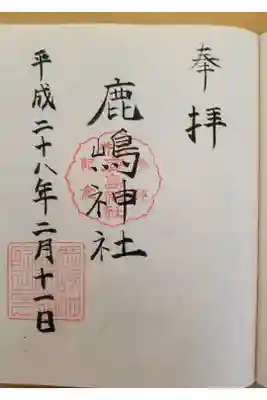 奉拝
鹿嶋神社
平成二十八年二月十一日